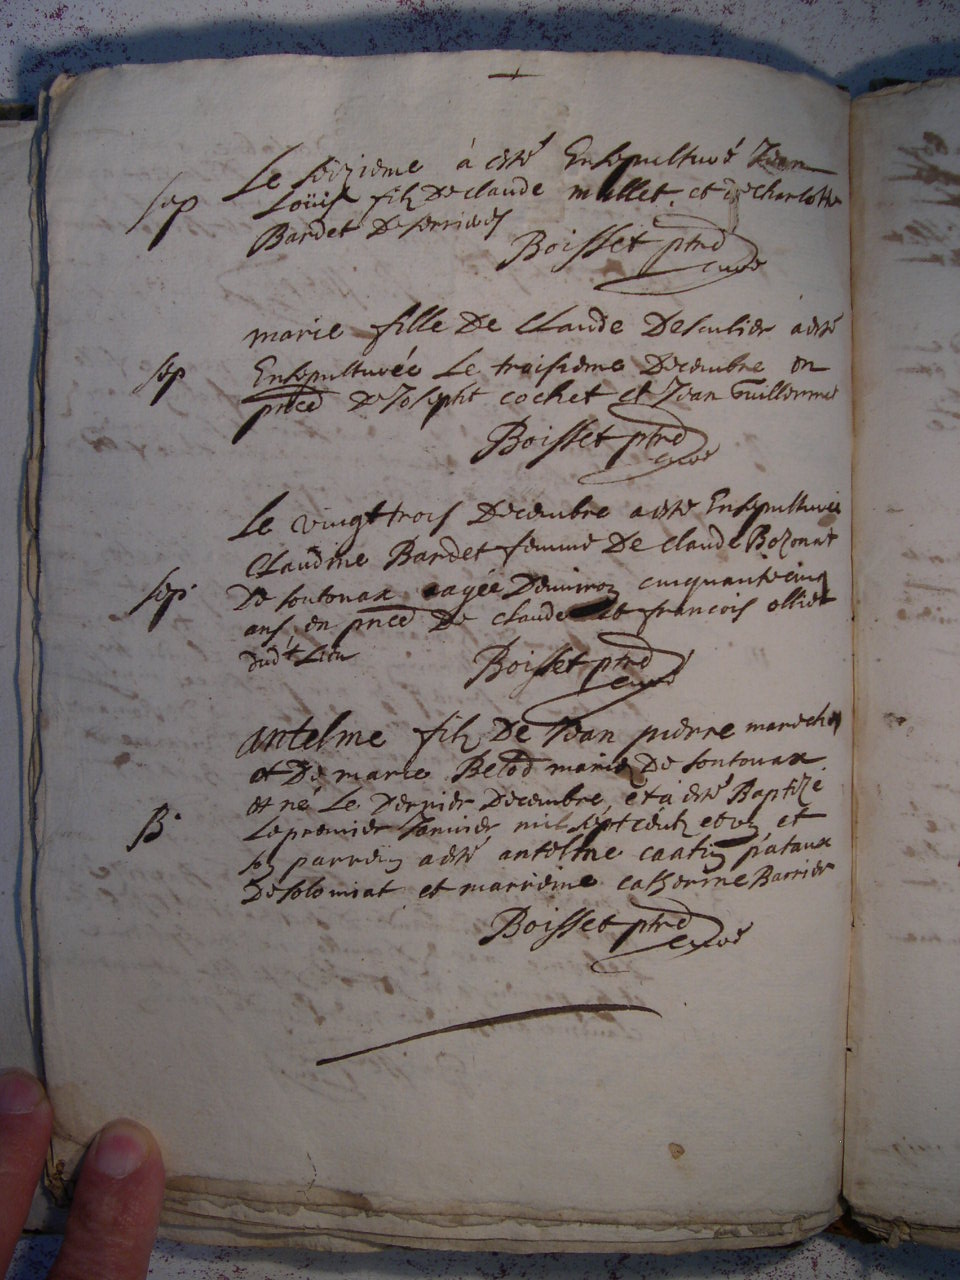 Le seizieme à esté Ensepulturé Jean
sep Loüis filz De claude mallet et de charlotte
Bardet De serrieres
Boisset ptre
curé
marie fille De Claude Descubier a esté
sep Ensepulturée Le troisieme Decembre en
pnce de Joseph cochet et Jean Guillerme
Boisset ptre
curé
Le vingt trois Decembre a esté Ensepulturée
Claudine Bardet femme De claude Bozonat
sep De soutonax aagée Denviron cinquante cinq
ans, en pnce De claude et francois ollier
dudt Lieu
Boisset ptre
curé
antelme filz De Jean pierre marechal
et De marie Belod mariez De sontonax
B. est né Le Dernier Decembre, et à esté Baptizé
Le premier Janvier mil sept centz et un et
son parrein a esté antelme pataux
De solomiat et marreine catherine Barrier
Boisset ptre
curé